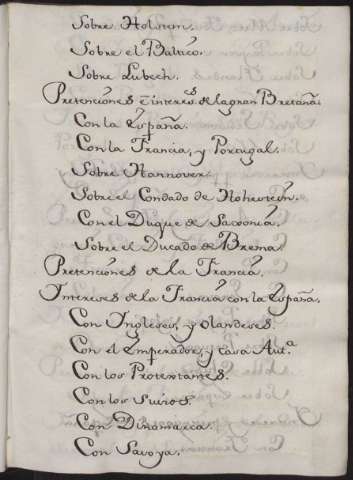 Sobre Holstein.
Sobre el Baltico.
Sobre Lubech.
Pretenciones é interes.s de la gran Bretaña.
Con la España.
Con la Francia, y Portugal.
Sobre Hannover.
Sobre el Condado de
Con el Duque de Saxonia.
Sobre el Ducado de Brema.
Pretenciones de la Francia.
Intereses de la Francia con la España.
Con Ingleses, y olandeses.
Con el Emperador, y casa Aut.a
Con los Protestantes.
Con los suisos.
Con Dinamarca.
Con Savoya.